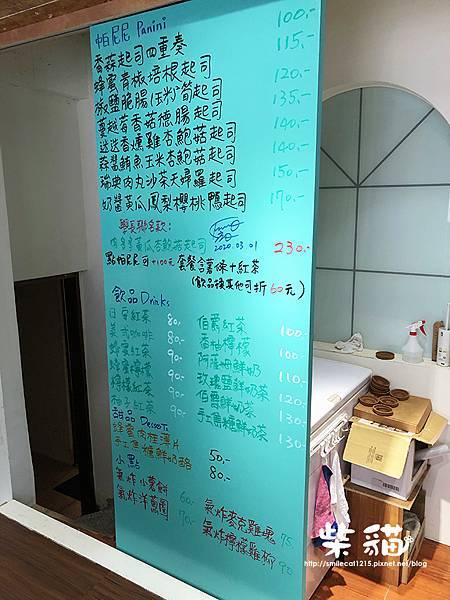 帕尼尼 Panini
香蒜起司四重奏 100.-
蜂蜜青椒培根起司 115.-
椒鹽脆腸(玉米)筍起司 120.-
蔓越莓香菇德腸起司 135.-
迷迭香燻雞杏鮑菇起司 140.-
蒜鹽鮪魚玉米杏鮑菇起司 140.-
瑞典肉丸沙茶天婦羅起司 150.-
奶醬黃瓜鳳梨櫻桃鴨起司 170.-
學長聯名款:
黃瓜杏鮑菇起司 2020.03.01 230.-
點帕尼尼可+100元 套餐含薯條+紅茶
(飲品換其他可折60元)
飲品 Drinks
日安紅茶 80.-
美式咖啡 80.-
蜂蜜紅茶 90.-
蜂蜜檸檬 90.-
檸檬紅茶 90.-
柚子紅茶 90.-
伯爵紅茶 100.-
香柚檸檬 100.-
阿薩姆鮮奶 110.-
玫瑰鹽鮮奶茶 120.-
伯爵鮮奶茶 130.-
手工焦糖鮮奶茶 130.-
甜品 Dessert
蜂蜜肉桂薄片 50.-
手工焦糖鮮奶酪 80.-
小點
氣炸小薯餅 60.-
氣炸洋蔥圈 70.-
氣炸麥克雞塊 75.
氣炸檸檬雞柳 90
柴貓
http://smilecat1215.pixnet.net/blog